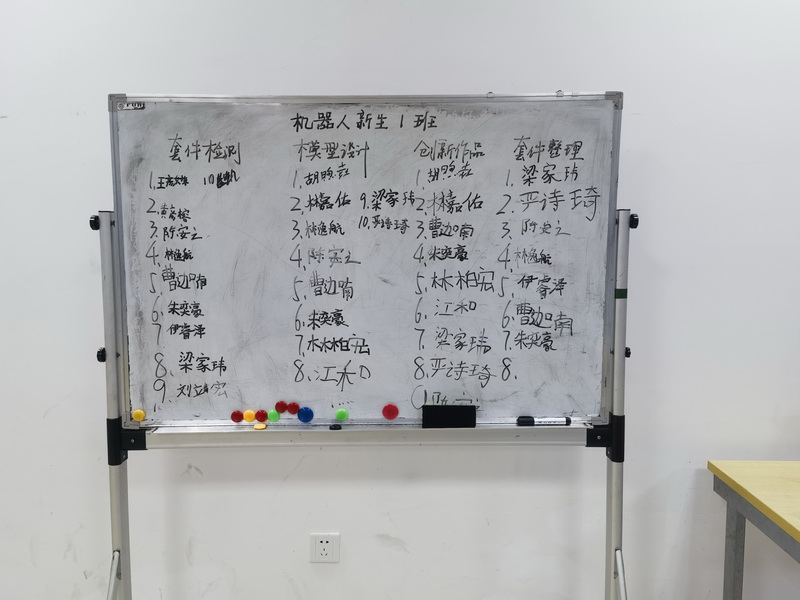 机器人新生1班
套件检测
1.
10.
2.
3.陈安之
4.林逸航
5.曹迦喃
6.朱奕豪
7.伊睿泽
8.梁家玮
9.刘立宏
模型设计
1.胡煦焱
2.林嘉佑
3.林逸航
4.陈安之
5.曹迦喃
6.朱奕豪
7.林柏宏
8.江和
9.梁家玮
10.严诗琦
创新作品
1.胡煦焱
2.林嘉佑
3.曹迦喃
4.朱奕豪
5.林柏宏
6.江和
7.梁家玮
8.严诗琦
套件整理
1.梁家玮
2.严诗琦
3.陈安之
4.林逸航
5.伊睿泽
6.曹迦喃
7.朱奕豪
8.